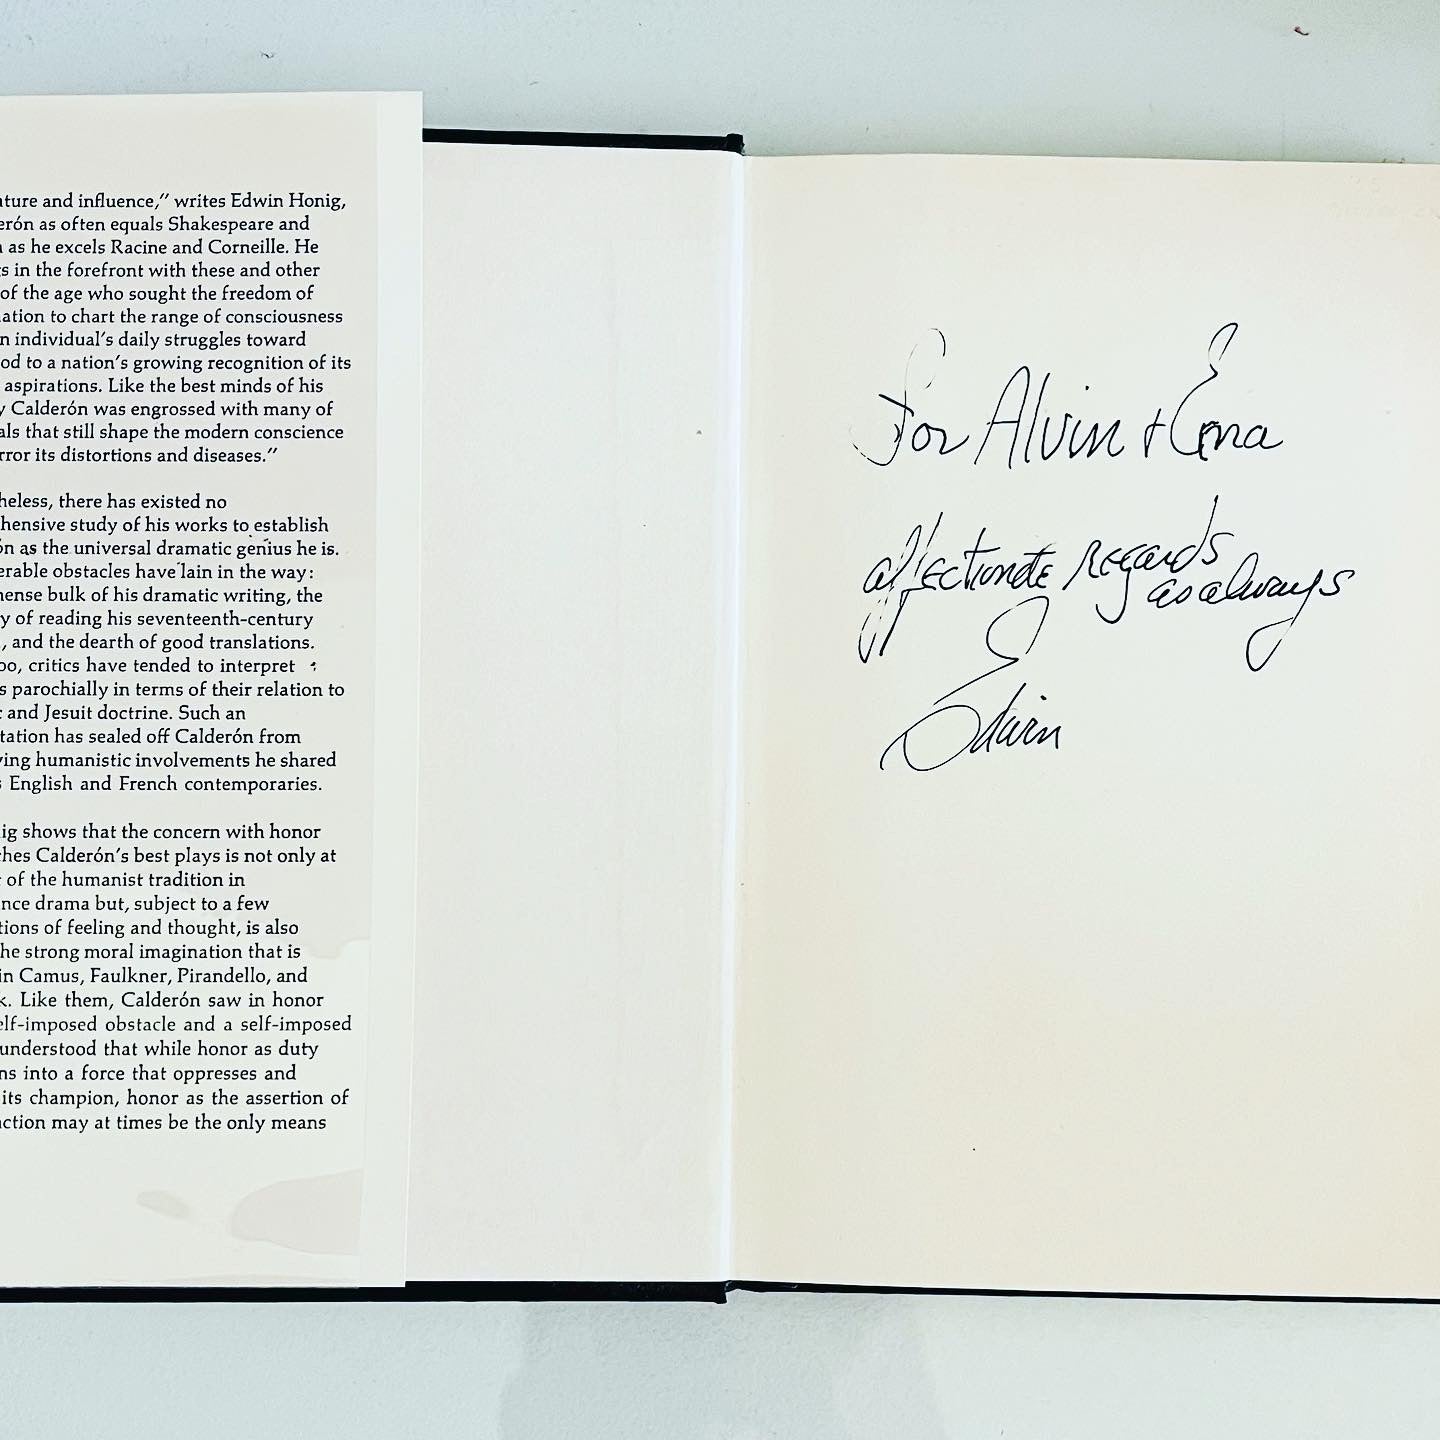 ature and influence," writes Edwin Honig,
erón as often equals Shakespeare and
as he excels Racine and Corneille. He
s in the forefront with these and other
of the age who sought the freedom of
ation to chart the range of consciousness
n individual's daily struggles toward
od to a nation's growing recognition of its
aspirations. Like the best minds of his
y Calderón was engrossed with many of
als that still shape the modern conscience
rror its distortions and diseases."
heless, there has existed no
hensive study of his works to establish
ón as the universal dramatic genius he is.
erable obstacles have lain in the way:
mense bulk of his dramatic writing, the
y of reading his seventeenth-century
, and the dearth of good translations.
oo, critics have tended to interpret
s parochially in terms of their relation to
and Jesuit doctrine. Such an
tation has sealed off Calderón from
ying humanistic involvements he shared
s English and French contemporaries.
ig shows that the concern with honor
ches Calderón's best plays is not only at
of the humanist tradition in
nce drama but, subject to a few
tions of feeling and thought, is also
he strong moral imagination that is
in Camus, Faulkner, Pirandello, and
k. Like them, Calderón saw in honor
elf-imposed obstacle and a self-imposed
understood that while honor as duty
ns into a force that oppresses and
its champion, honor as the assertion of
action may at times be the only means
For Alvin + Erna
affectionate regards
as always
Edwin